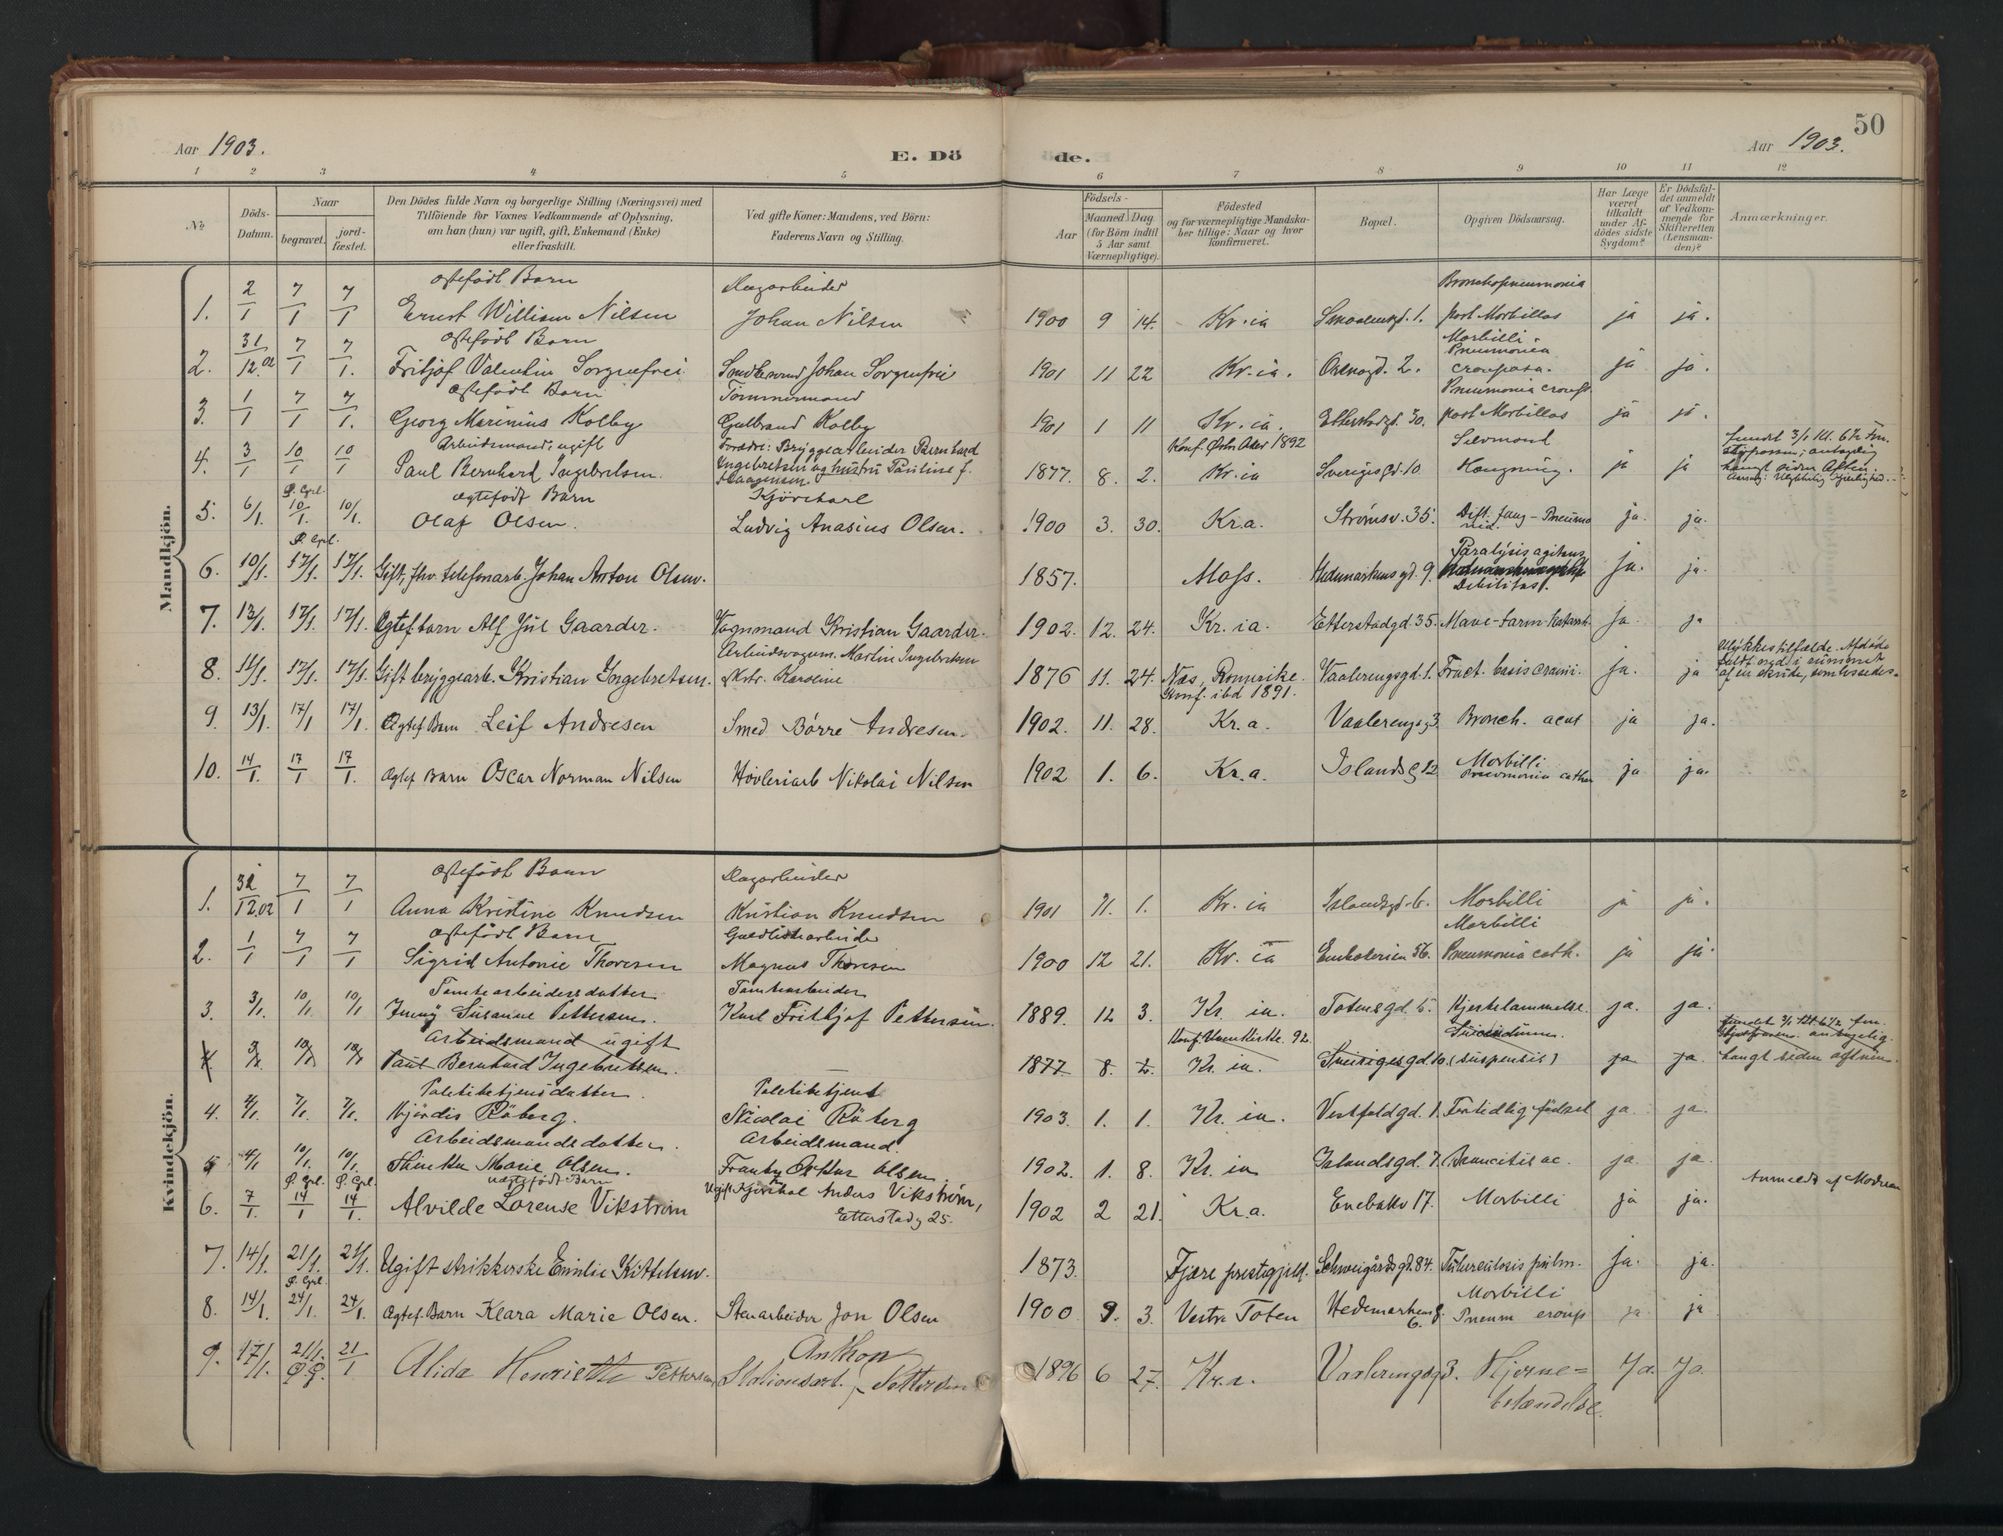 50
Aar 1903.
E. Dö
de.
Aar 1903.
1 2 3 4 5 6 7 8 9 10 11 12
No
Döds-Datum.
Naar
begravet.
jord-fæstet.
Den Dödes fulde Navn og borgerlige Stilling (Næringsvei) med
Tilföiende for Voxnes Vedkommende af Oplysning,
om han (hun) var ugift, gift, Enkemand (Enke)
eller fraskilt.
Ved gifte Koner: Mandens, ved Börn:
Faderens Navn og Stilling.
Aar
Födsels-
Maaned Dag
(for Börn indtil
5 Aar samt
Værnepligtige).
Födested
og for værnepligtige Mandska-
ber tillige: Naar og hvor
konfirmeret.
Bopæl.
Opgiven Dödsaarsag.
Har Læge
været
tilkaldt
under Af-
dödes sidste
Sygdom?
Er Dödsfal-
det anmeldt
af Vedkom-
mende for
Skifteretten
(Lensman-
den)?
Anmærkninger.
Mandkjön.
ægtefödt Barn Dagarbeider Bronchopneumonia
1. 2/1 7/1 7/1 Ernst William Nilsen Johan Nilsen 1900 9 14. Kr.ia Smaalensgd. 1. post Morbillos ja ja.
ægtefödt Barn Morbilli
Pneumonia
2. 31/12.02 7/1 7/1. Fritjof Valentin Sorgnefrei Johan Sorgenfrie 1901 11 22 Kr.ia. 2. crouposa. ja ja.
ægtefödt Barn Tömmermand Pneumonia croup.
3. 1/1 7/1 7/1. Georg Marinius Kolby Gulbrand Kolby 1901 1 11 Kr.ia. Etterstadgd. 30. post Morbillos ja ja.
Arbeidsmand, ugift Foræld: Bryggearbeider Bernhard Konf. Østre Aker 1892 Selvmord
4. 3/1 10/1 10/1 Paul Bernhard Ingebretsen. Ingebretsen og hustru Pauline f. Haagensen 1877. 8. 2. Kr.ia Sveriges gd. 10. Hængning. ja ja fundet 3/1 Kl. 6½ Fm.
hængt siden Aften.
ægtefödt Barn Kjörekarl
5. 6/1. 10/1 10/1. Olaf Olsen. Ludvig Anasius Olsen. 1900 3. 30. Kr.a. Strømsv. 35. Dift. faug - Pneumonia. ja. ja.
6. 10/1. 17/1. 17/1. Gift, fhv. telefonarb. Johan Anton Olsen. 1857. Moss. Hedemarkens gd. 9. Paralysis agitans
Debilitas. ja. ja.
7. 13/1. 17/1. 17/1. Ægtef. barn Alf Jul Gaarder. Vognmand Kristian Gaarder. 1902. 12. 24. Kr. ia. Etterstadgd. 35. Mave-tarm-katarrh ja. ja
Arbeidsvogm. Martin Ingebretsen Ulykkestilfælde. Afdöde
8. 11/1. 17/1. 17/1. Gift bryggearb. Kristian Ingebretsen. Karoline 1876 11. 24. Næs, Romerike. Konf. ibd 1891. Vaalerengsgd. 1. Fract. basis cranii. ja. ja
9. 13/1. 17/1 17/1. Ægtef. Barn Leif Andresen Smed Børre Andresen. 1902. 11. 28. Kr.a. Vaalerengsg 3. Bronch. acut ja ja.
10. 14/1. 17/1 17/1. Ægtef Barn Oscar Norman Nilsen Høvleriarb Nikolai Nilsen 1902 1. 6. Kr.a. Islandsg 12 Morbilli
Pneumonia cathar ja ja.
Kvindekjön.
ægtefödt Barn Dagarbeider
1. 12.02 7/1 7/1 Anna Kristine Knudsen Kristian Knudsen 1901 11. 1. Kr.ia Islandsgd. 6. Morbilli ja ja.
ægtefödt Barn Guldlistearbeider Morbilli
2. 1/1 7/1 7/1 Sigrid Antonie Thoresen Magnus Thoresen 1900 12 21. Kr. ia 56. Pneumonia cath. ja ja.
Tomtearbeidersdatter Tomtearbeider
3. 3/1. 10/1. 10/1. Jenny Susanne Pettersen. Karl Frithjof Pettersen. 1889. 12 3. Kr. ia. Totensgd. 5. Hjertelammelse. ja. ja.
Arbeidsmand ugift 92. Suicidium.
4 Paul Bernhard Ingebretsen. 1877 8. 2. Kr. ia. Sverigesgd. 10. (suspensis) ja ja. hængt siden aftenen.
Politibetjentsdatter. Politibetjent
4. 4/1. 7/1. 7/1. Hjördis Råberg. Nicolai Råberg 1903. 1. 1. Kr. ia. Vestfoldgd. 1. Fortidlig födsel ja. ja.
Arbeidsmandsdatter. Arbeidsmand.
5 4/1. 10/1. 10/1. Marie Olsen. Olsen. 1902. 1. 8. Kr. ia Islandsgd. 7. ac. ja. ja.
uægtefödt Barn
6. 7/1. 14/1 14/1. Alvilde Lorense Vikström Ugift Kjörekal Anders Vikström, Etterstadg 25. 1902 2 21. Kr.a. Enebakv 17. Morbilli ja ja. Anmeldt af Modren
7. 14/1. 21/1. 21/1. Ugift strikkerske Emilie Kittelsen. 1873. Fjære prestegjeld. Schweigårdsgd. 84. Tuberculosis pulm. ja. ja.
8. 14/1. 24/1. 24/1. Ægtef. Barn Klara Marie Olsen. Stenarbeider Jon Olsen 1900 9. 3. Vestre Toten Hedemarkens g. 6. Morbilli
Pneum croup ja ja
9. 17/1. 21/1. 21/1 Alida Henriette Pettersen Stationsarb. Anthon Pettersen 1896 6 27. Kr.a. Vaalerengsg 3. Hjerne=
betændelse. Ja. Ja.